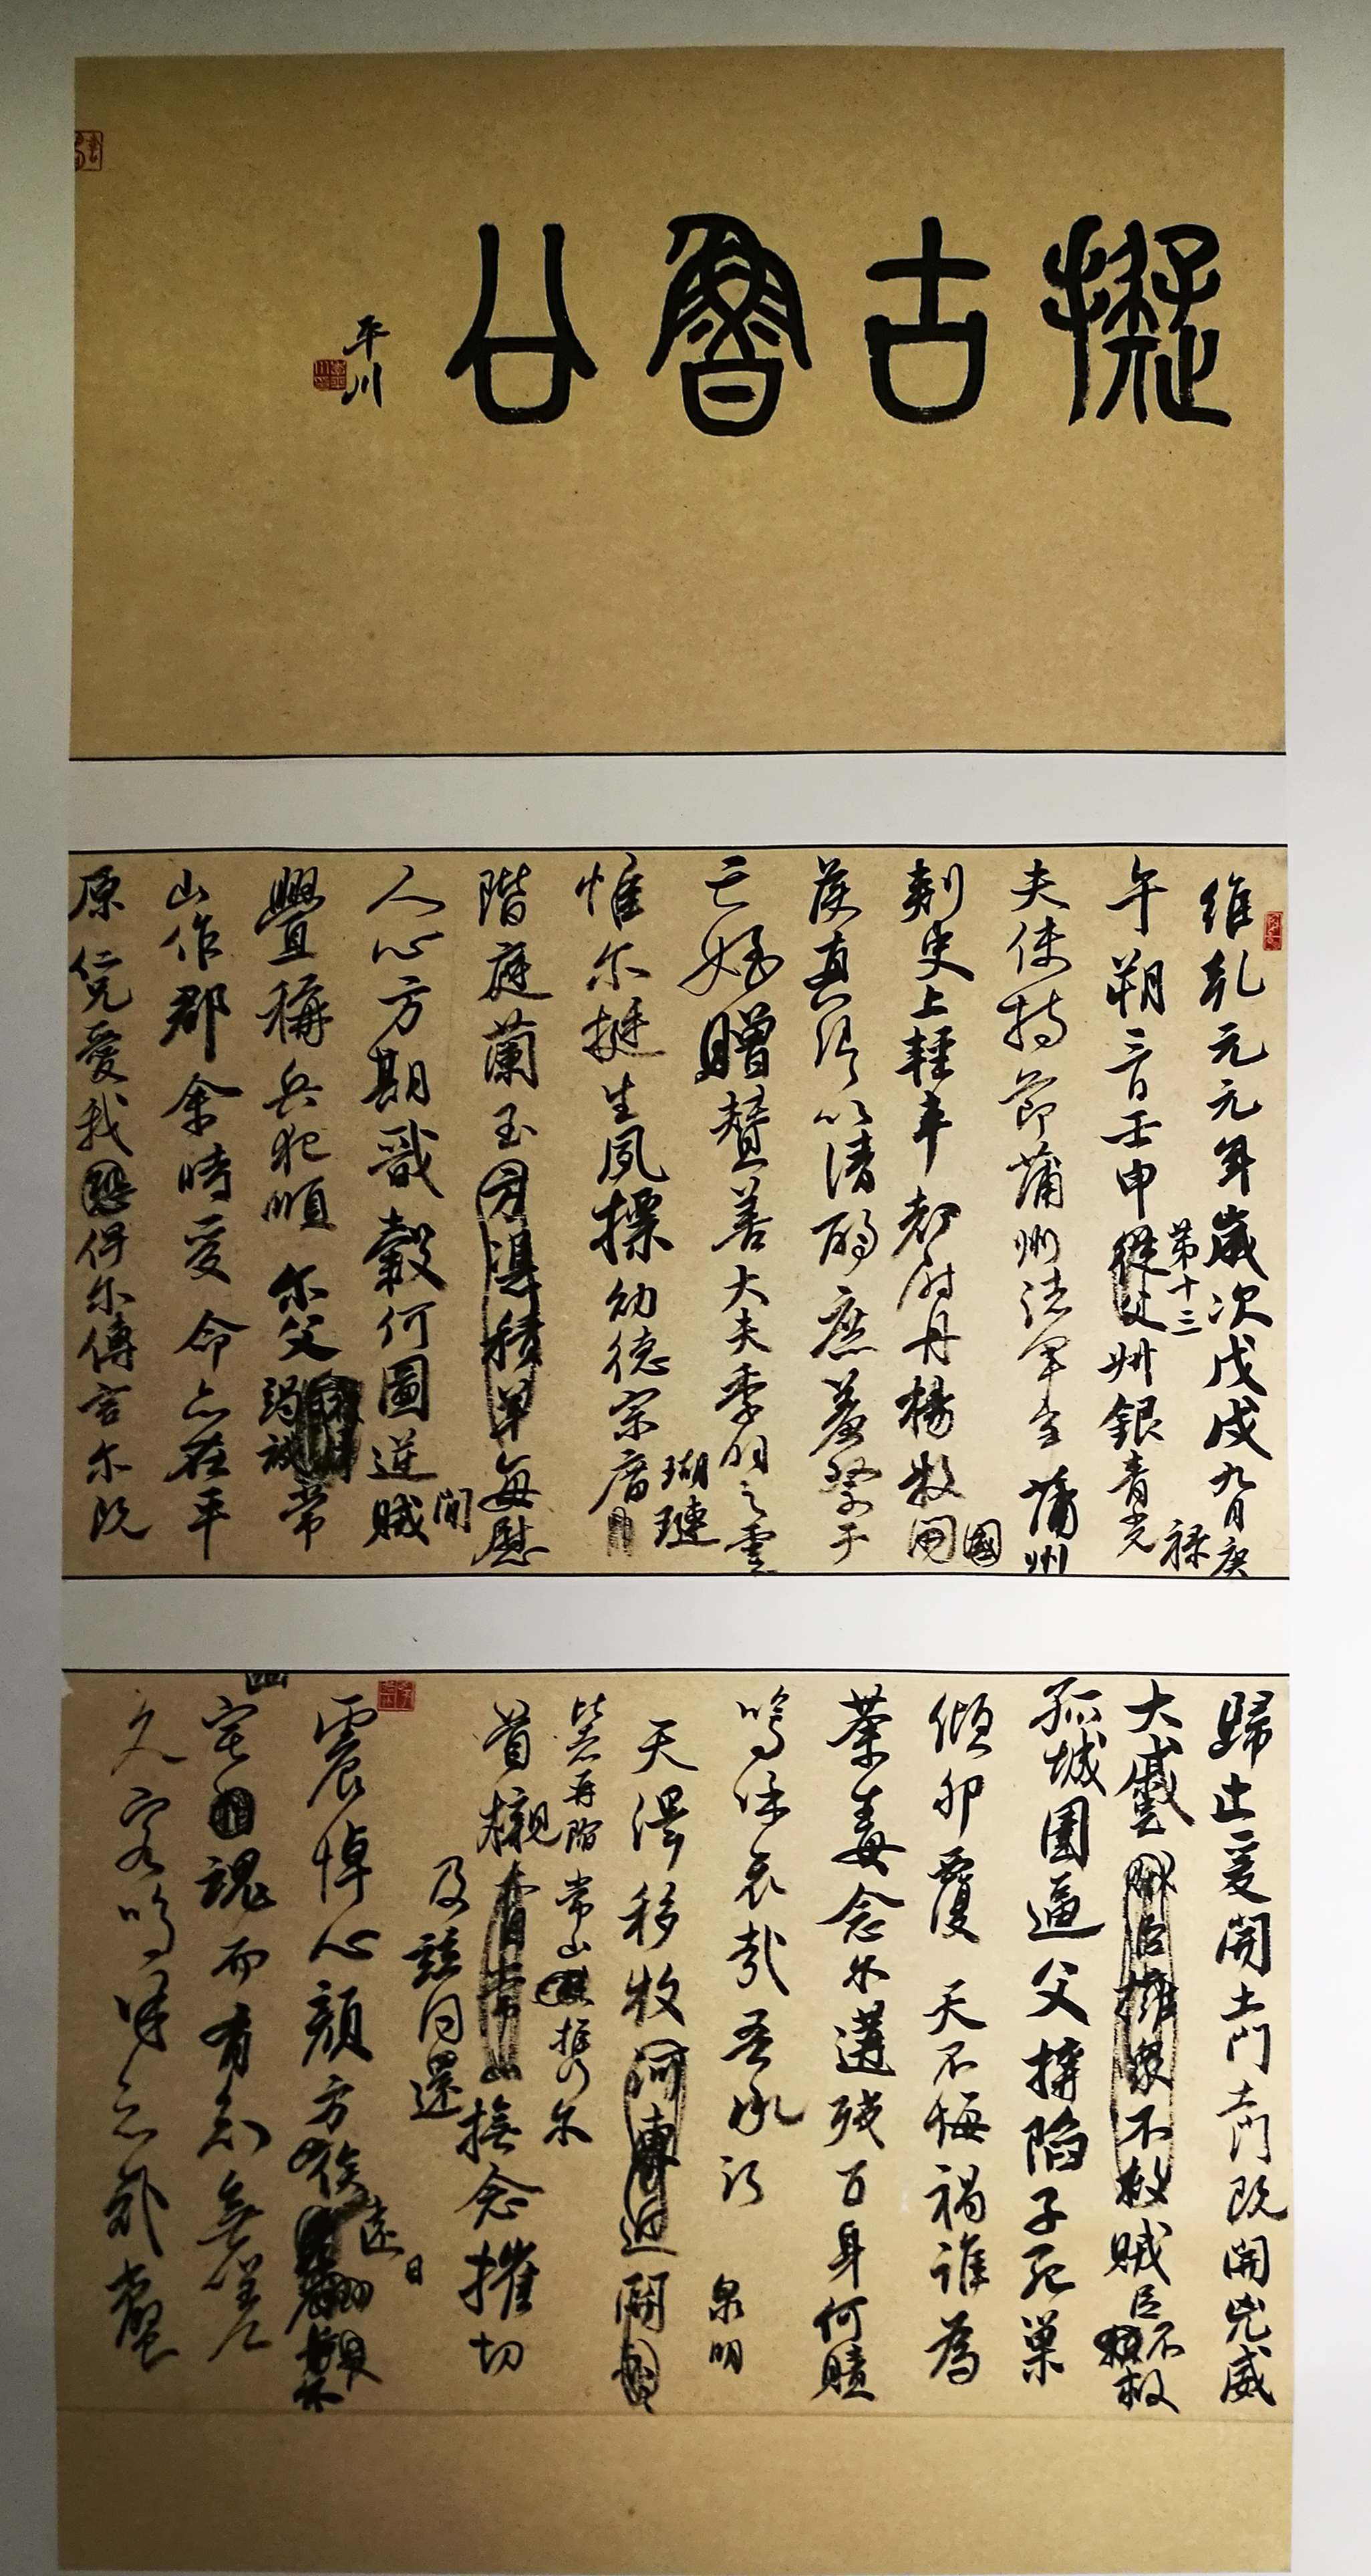 擬古魯公
平川
維乾元元年歲次戊戌九月庚
午朔三日壬申從父州銀青光
第十三
祿
夫使持節蒲州諸軍事蒲州
刺史上輕車都尉丹楊縣開
國
侯真卿以清酌庶羞祭于
亡姪贈贊善大夫季明之靈
惟尔挺生夙標幼德宗廟
瑚璉
階庭蘭玉方憑積善每慰
人心方期戩穀何圖逆賊
閒
舋稱兵犯順尔父竭誠常
山作郡余時受命亦在平
原仁兄愛我恐俾尔傳言尔既
歸止爰開土門土門既開兇威
大蹙賊臣擁眾不救賊臣不救
孤城圍逼父擒陷子死巢
傾卵覆天不悔禍誰為
荼毒念尔遘殘百身何贖
嗚呼哀哉吾承
泉明
天澤移牧河東近關
比者再陷常山提携尔
首櫬撫念摧切
及茲同還
震悼心顏方俟
遠日
幽
宅魂而有知無嗟
久客嗚呼哀哉尚饗